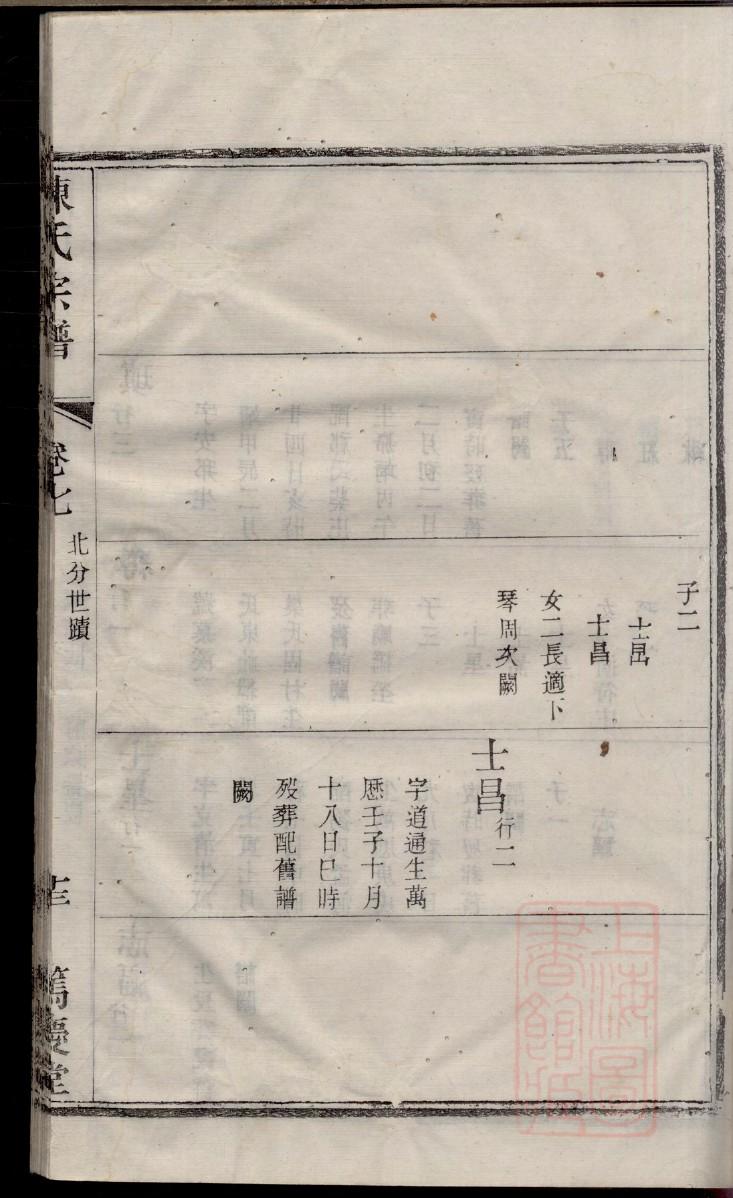 子二
士昌
女二長適卞
琴周次闕
士昌行二
字道通生萬
厯壬子十月
十八日巳時
歿葬配舊譜
闕
陳氏宗譜
卷七
北分世蹟
篤慶堂
上海圖書館藏